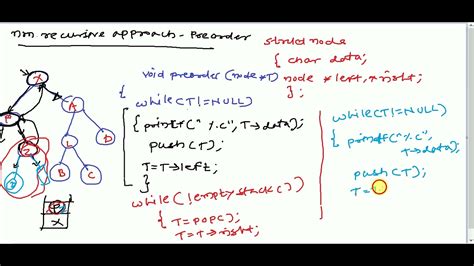 non recursive approach - Preorder
struct node
{ char data;
node *left, *right;
};
void preorder (node *T)
{ while(T!=NULL)
{ printf("%c", T→data);
push(T);
T=T→left;
}
while(!emptystack())
{ T=POP();
T=T→right;
while(T!=NULL)
{ printf("%c",
T→data);
push(T);
T=
X
P
A
L
D
B
C
X